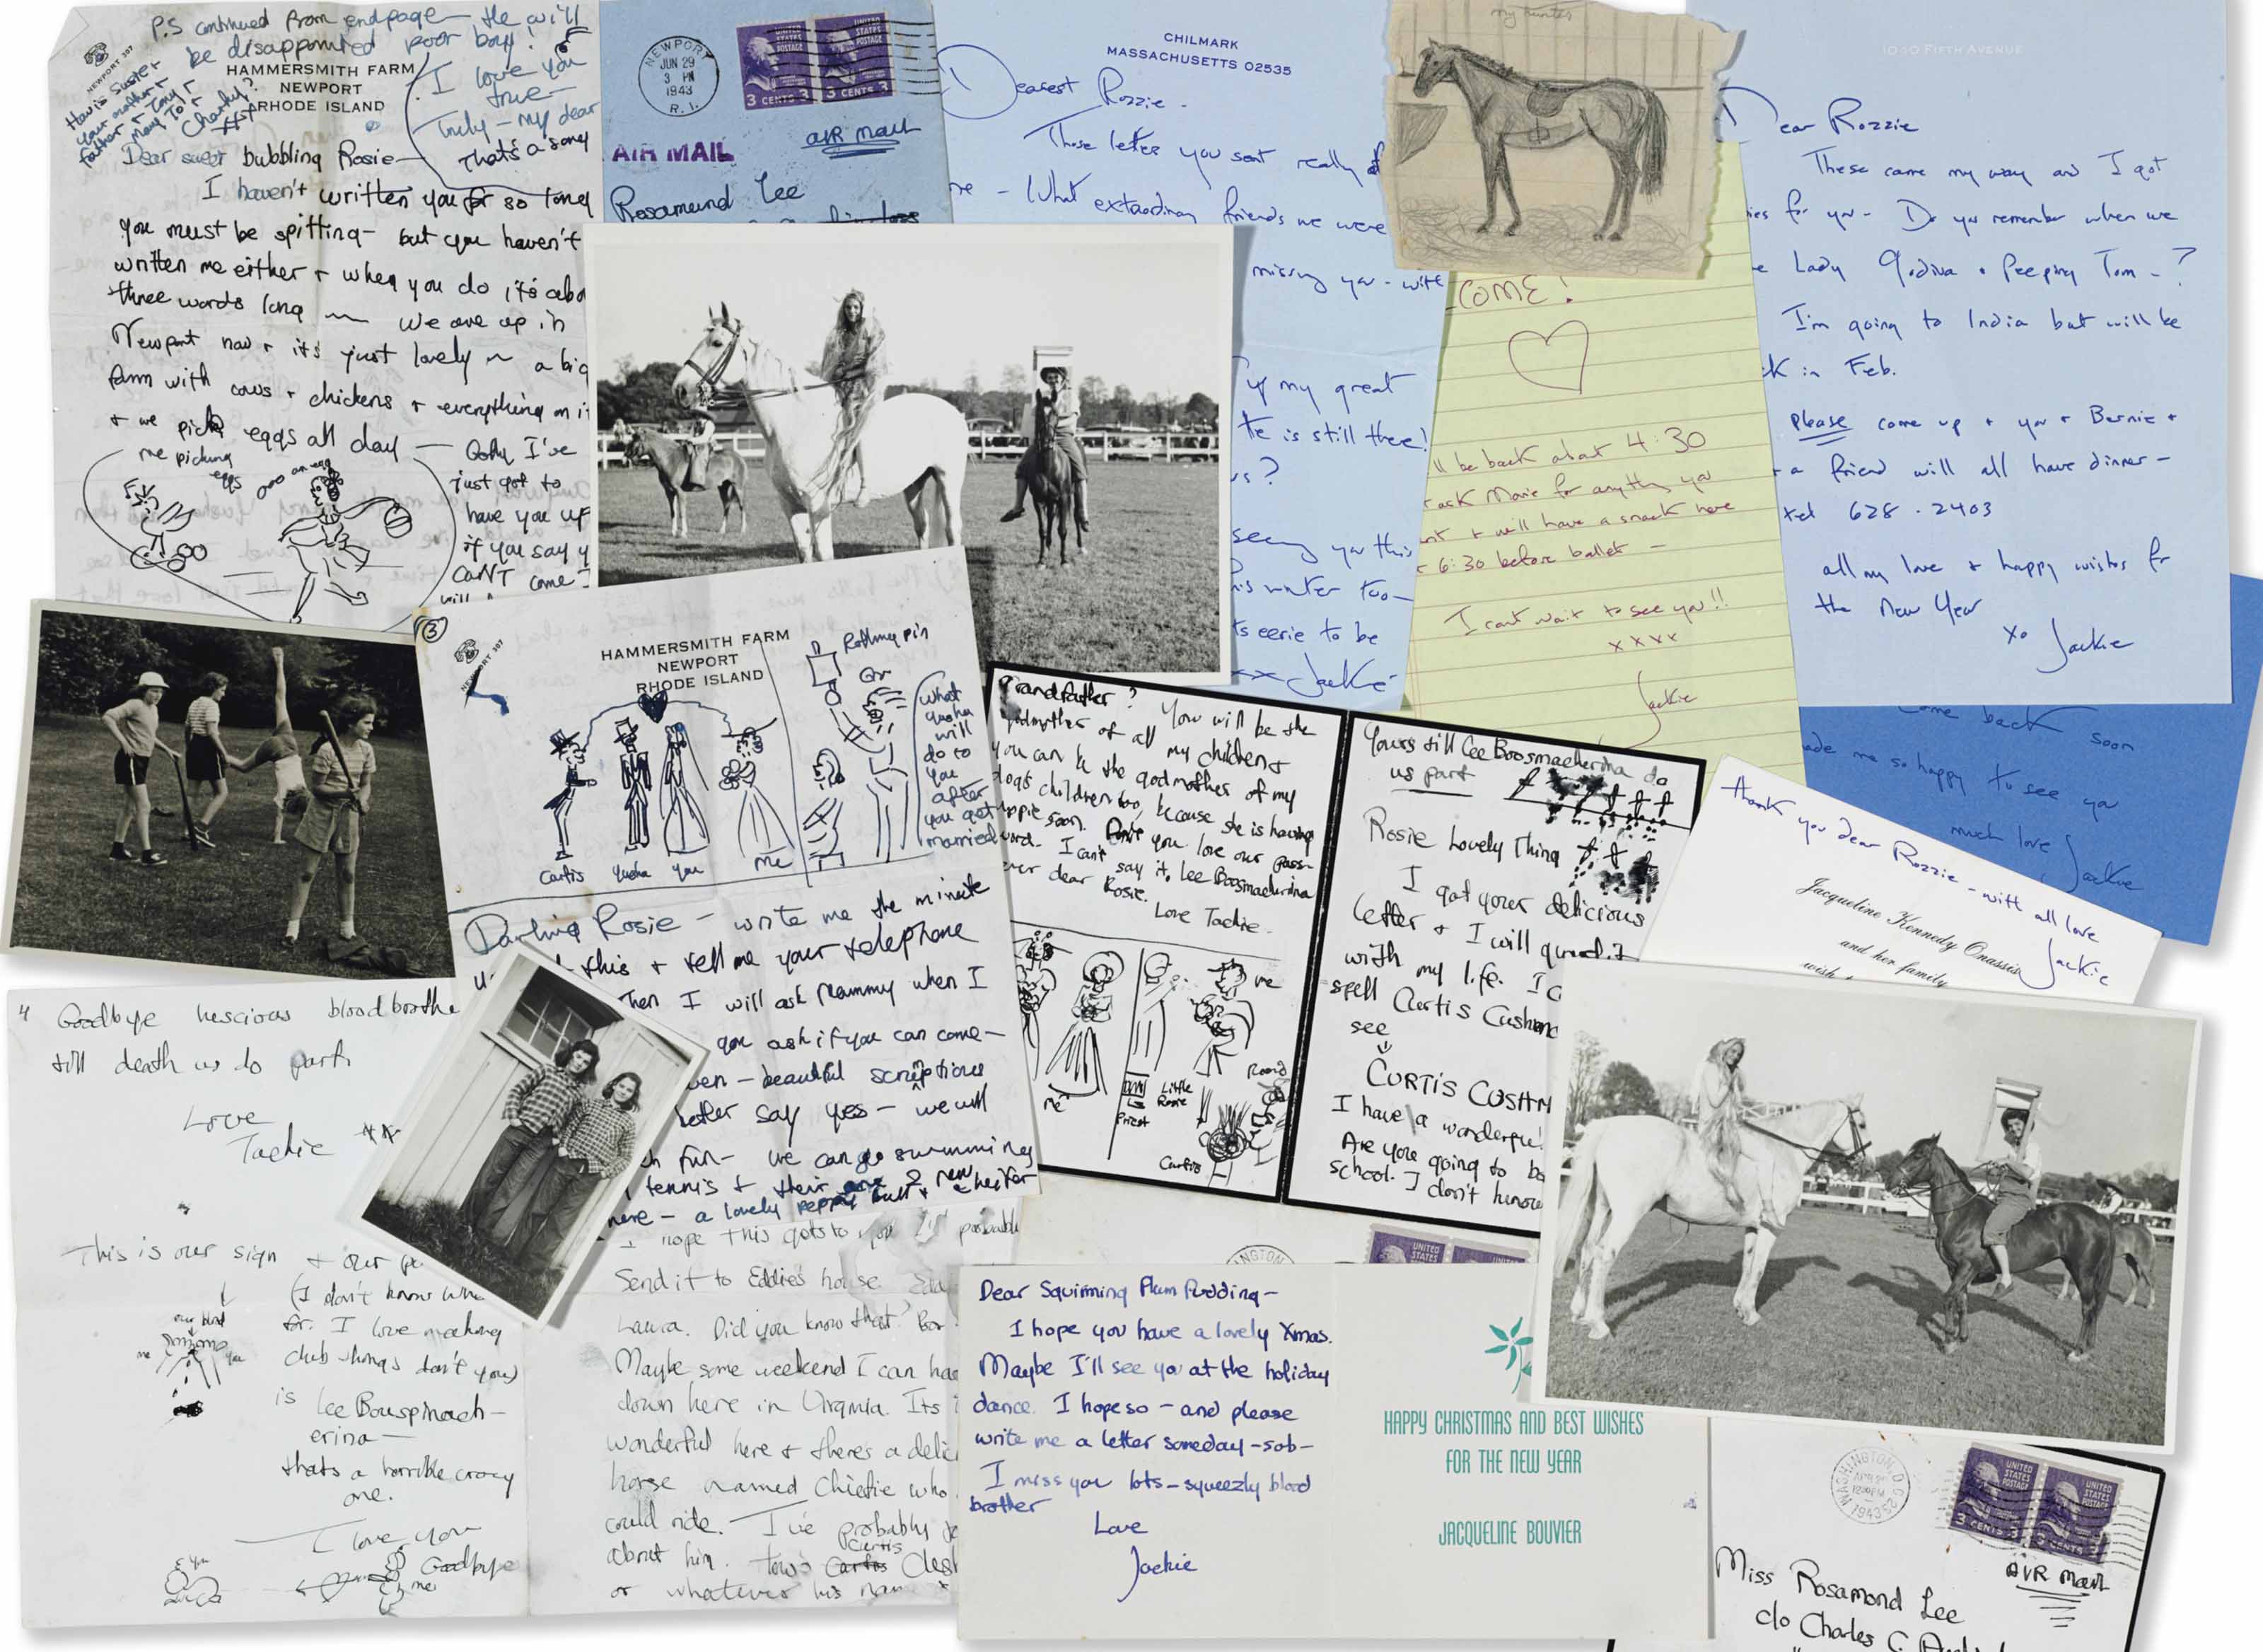 P.S continued from endpage – He will
be disappointed poor boy!
NEWPORT 307
HAMMERSMITH FARM
NEWPORT
RHODE ISLAND
How is Susie +
your mother +
father + Tony +
Mary Jo? +
Charley?
I love you
true –
Truly – my dear
That's a song
Dear sweet bubbling Rosie –
I haven't written you for so long
you must be spitting – but you haven't
written me either + when you do it's abo
three words long – We are up in
Newport now + it's just lovely – a big
farm with cows + chickens + everything on it
+ we pick eggs all day –
me picking
eggs
ooo an egg
Golly I've
just got to
have you up
if you say y
CAN'T come I
will
NEWPORT
JUN 29
3 PM
1943
R. I.
UNITED
STATES
POSTAGE
3 CENTS 3
UNITED
STATES
POSTAGE
3 CENTS 3
AIR MAIL
AIR MAIL
Rosamund Lee
CHILMARK
MASSACHUSETTS 02535
Dearest Rozzie –
Those letters you sent really
me – What extraordinary friends we were
missing you – with
of my great
He is still there!
us?
seeing you this
this winter too –
its eerie to be
xx Jackie
my hunter
COME!
ll be back about 4:30
ask Marie for anything you
nt + will have a snack here
6:30 before ballet –
I cant wait to see you!!
x x x x
Jackie
1040 FIFTH AVENUE
Dear Rozzie
These came my way and I got
ies for you – Do you remember when we
e Lady Godiva + Peeping Tom – ?
I'm going to India but will be
k in Feb.
please come up + you + Bernie +
+ a friend will all have dinner –
tel 628 . 2403
all my love + happy wishes for
the New Year
xo Jackie
come back soon
ade me so happy to see you
much love
Jackie
thank you dear Rozzie – with all love
Jackie
Jacqueline Kennedy Onassis
and her family
wish
3
NEWPORT 307
HAMMERSMITH FARM
NEWPORT
RHODE ISLAND
Rolling pin
Grr
what
yusha
will
do to
you
after
you get
married
Curtis
Yusha
you
me
Darling Rosie – write me the minute
this + tell me your telephone
Then I will ask Mummy when I
you ask if you can come –
ven – beautiful scriptions
better say yes – we will
ch fun – we can go swimming
tennis + their are 2 new
here – a lovely peppy bull + a heifer
Grandfather? You will be the
godmother of all my children +
you can be the godmothers of my
dogs children too, because she is having
uppies soon. Don't you love our pass-
word. I can't say it, Lee Boosmacherina
ever dear Rosie.
Love Jackie.
me
Priest
Little
Rosie
me
Curtis
Yours till Lee Boosmacherina do
us part
Rosie Lovely Thing
I got your delicious
letter + I will guard it
with my life. I c
spell Curtis Cushm
see
CURTIS CUSHM
I have a wonderful
Are you going to b
school. I don't know
4 Goodbye luscious bloodbrothe
till death us do part
Love
Jackie
This is our sign + our pa
(I don't know wha
for. I love making
club things don't you)
is Lee Bouspinach –
erina –
thats a horrible crazy
one.
our blood
me
you
I love you
Goodbye
you
me
I hope this gets to you I'll probably
Send it to Eddie's house
Laura. Did you know that? Bor
Maybe some weekend I can ha
down here in Virginia. Its
wonderful here + there's a deli
horse named Chiefie who
could ride. I've probably
about him. How's Curtis Cush
or whatever his name
INGTON
UNITED
STATES
UNITED
Dear Squirming Plum Pudding –
I hope you have a lovely Xmas.
Maybe I'll see you at the holiday
dance. I hope so – and please
write me a letter someday – sob –
I miss you lots – squeezly blood
brother
Love
Jackie
HAPPY CHRISTMAS AND BEST WISHES
FOR THE NEW YEAR
JACQUELINE BOUVIER
WASHINGTON, D.C.
1943
UNITED
STATES
POSTAGE
3 CENTS 3
UNITED
STATES
POSTAGE
3 CENTS 3
AIR MAIL
Miss Rosamond Lee
c/o Charles C.